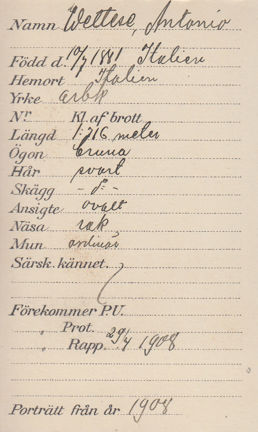 Namn Wettese, Antonio
Född d. 10/7 1881 Italien
Hemort Italien
Yrke arbk
Nr Kl. af brott
Längd 1,716 meter
Ögon bruna
Hår svart
Skägg - d:o -
Ansigte ovalt
Näsa rak
Mun ordinär
Särsk. kännet.
Förekommer P.U.
" Prot.
" Rapp. 29/4 1908
Porträtt från år 1908